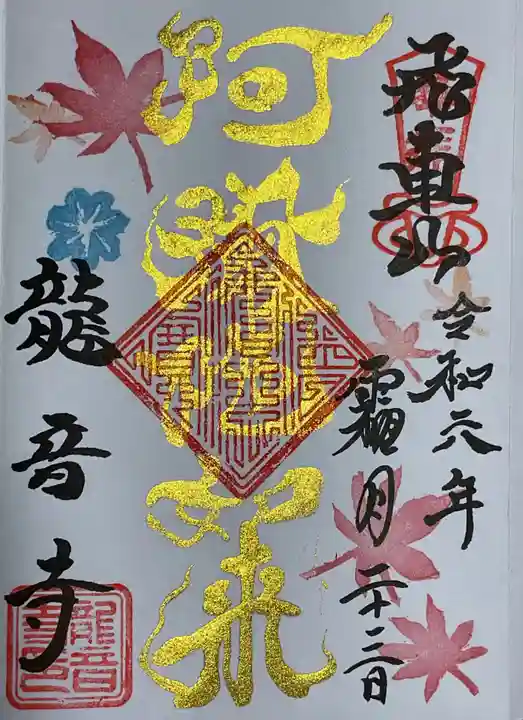 飛車山
令和六年
霜月二十二日
阿彌陀如来
龍音寺